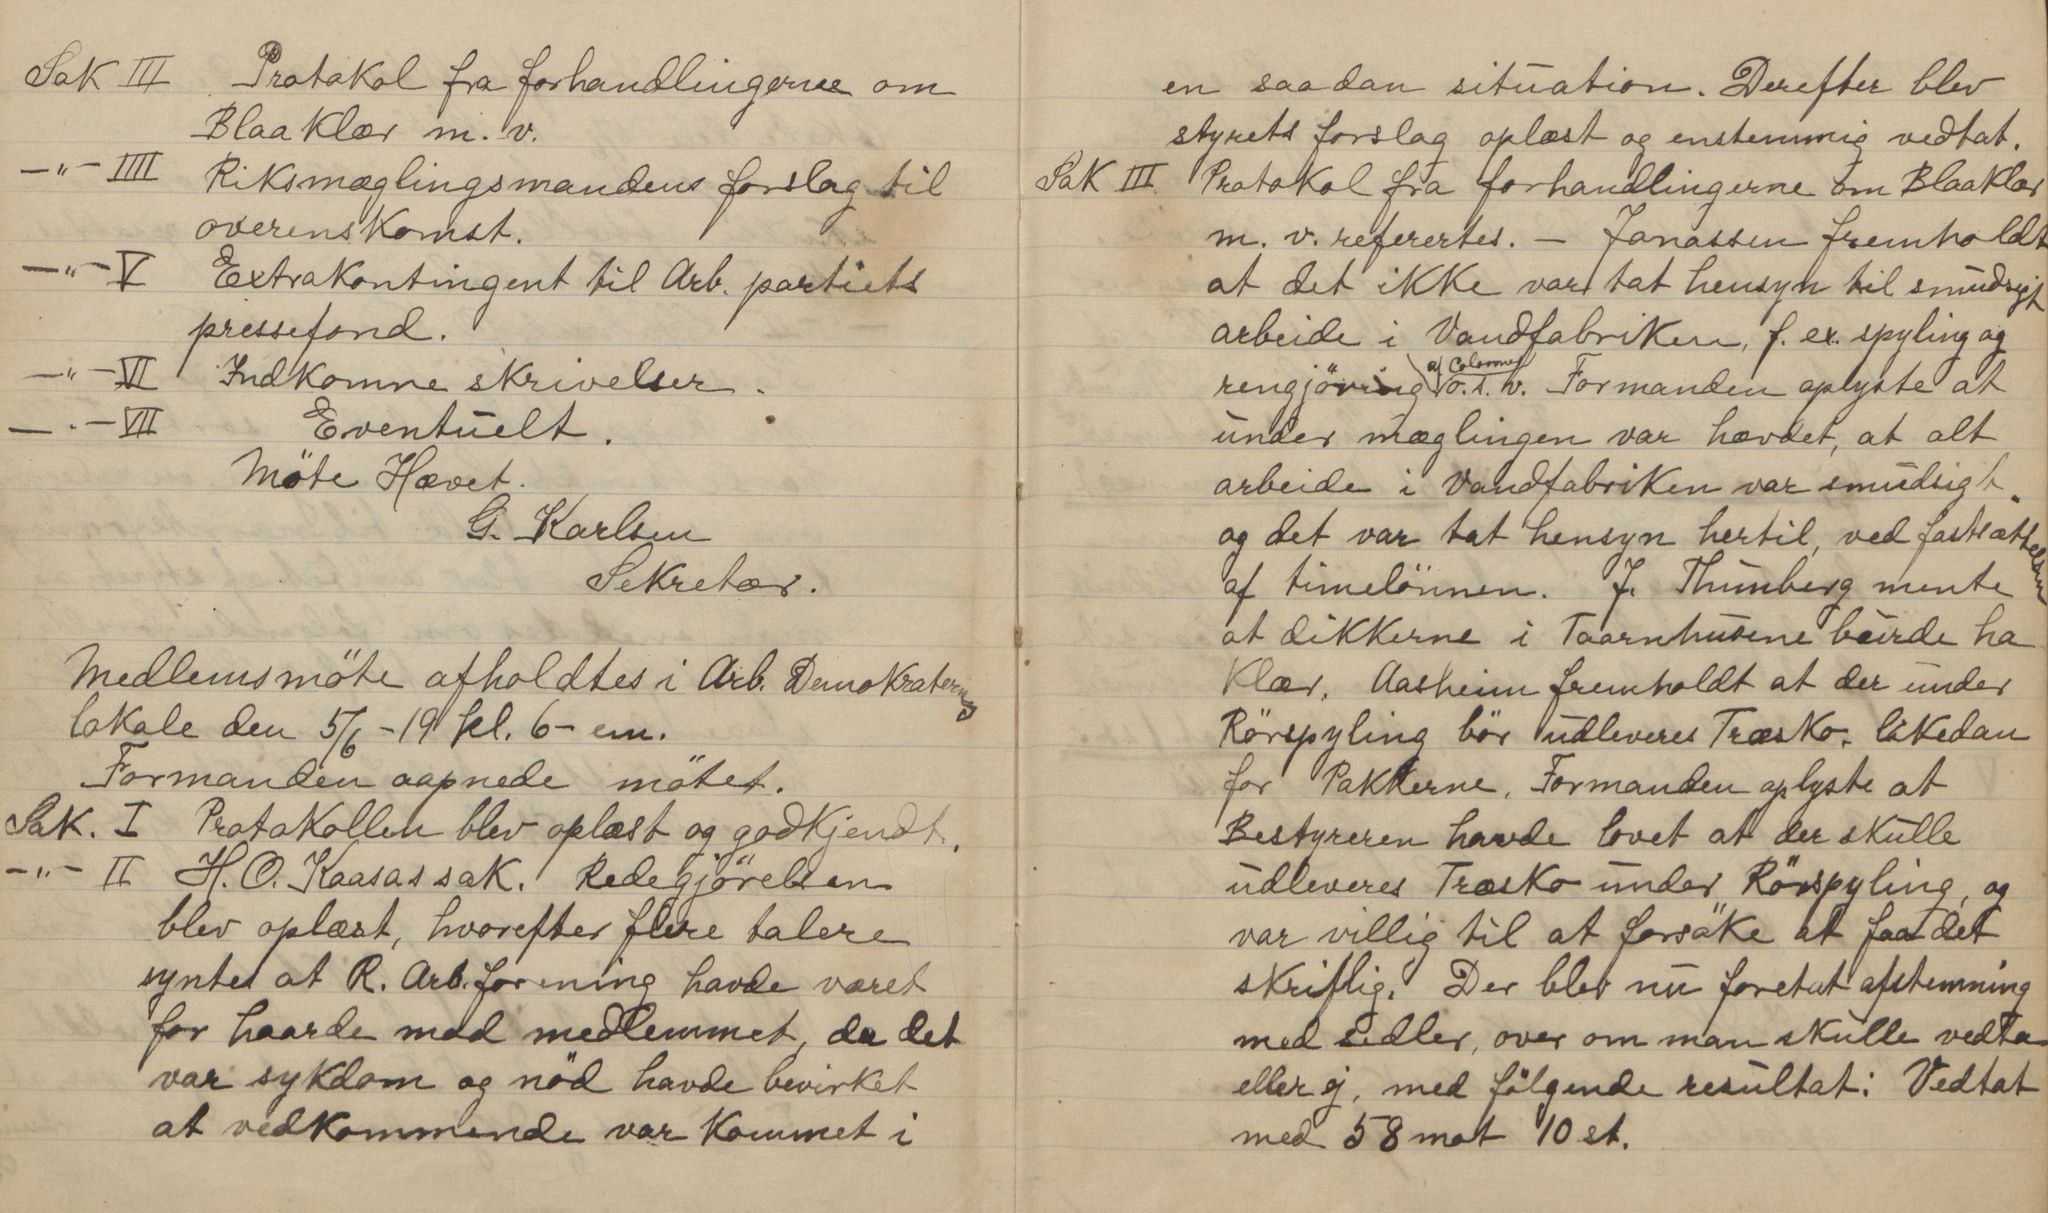 Sak III Protokol fra forhandlingerne om
Blaaklær m. v.
—"— IIII Riksmæglingsmandens forslag til
overenskomst.
—"— V Extrakontingent til Arb. partiets
pressefond.
—"— VI Indkomne skrivelser.
—"— VII Eventuelt.
Möte Hævet.
G. Karlsen
Sekretær.
Medlemsmöte afholdtes i Arb. Demokraternes
lokale den 5/6 - 19 kl. 6 - em.
Formanden aapnede mötet.
Sak. I Protokollen blev oplæst og godkjendt.
—"— II H. O. Kaasas sak. Redegjörelsen
blev oplæst, hvorefter flere talere
syntes at R. Arb. forening havde været
for haarde mod medlemmet, da det
var sykdom og nöd havde bevirket
at vedkommende var kommet i
en saadan situation. Derefter blev
styrets forslag oplæst og enstemmig vedtat.
Sak III Protokol fra forhandlingerne om Blaaklær
m. v. refererertes. — Jonassen fremholdt
at det ikke var tat hensyn til smudsigt
arbeide i Vandfabriken, f. ex. spyling og
rengjöring af Colonner o. s. v. Formanden oplyste at
under mæglingen var hævdet, at alt
arbeide i Vandfabriken var smudsigt.
og det var tat hensyn hertil, ved fastsættelsen
af timelönnen. J. Thunberg mente
at dikkerne i Taarnhusene burde ha
Klær. Aasheim fremholdt at der under
Rörspyling bör udleveres Træsko. likedan
for Pakkerne. Formanden oplyste at
Bestyreren havde lovet at der skulle
udleveres Træsko under Rörspyling, og
var villig til at forsöke at faa det
skriftlig. Der blev nu foretat afstemning
med sedler, over om man skulle vedta
eller ej, med fölgende resultat: Vedtat
med 58 mot 10 st.